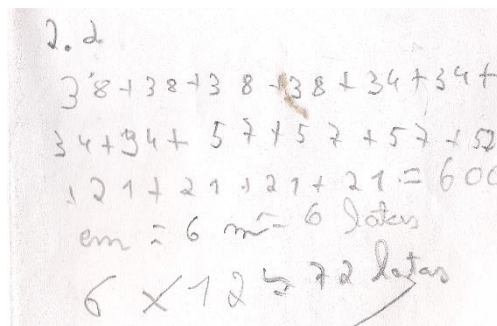 2.2
38+38+38+38+34+34+
34+34+57+57+57+57
+21+21+21+21=600
cm = 6 m = 6 latas
6 x 12 = 72 latas